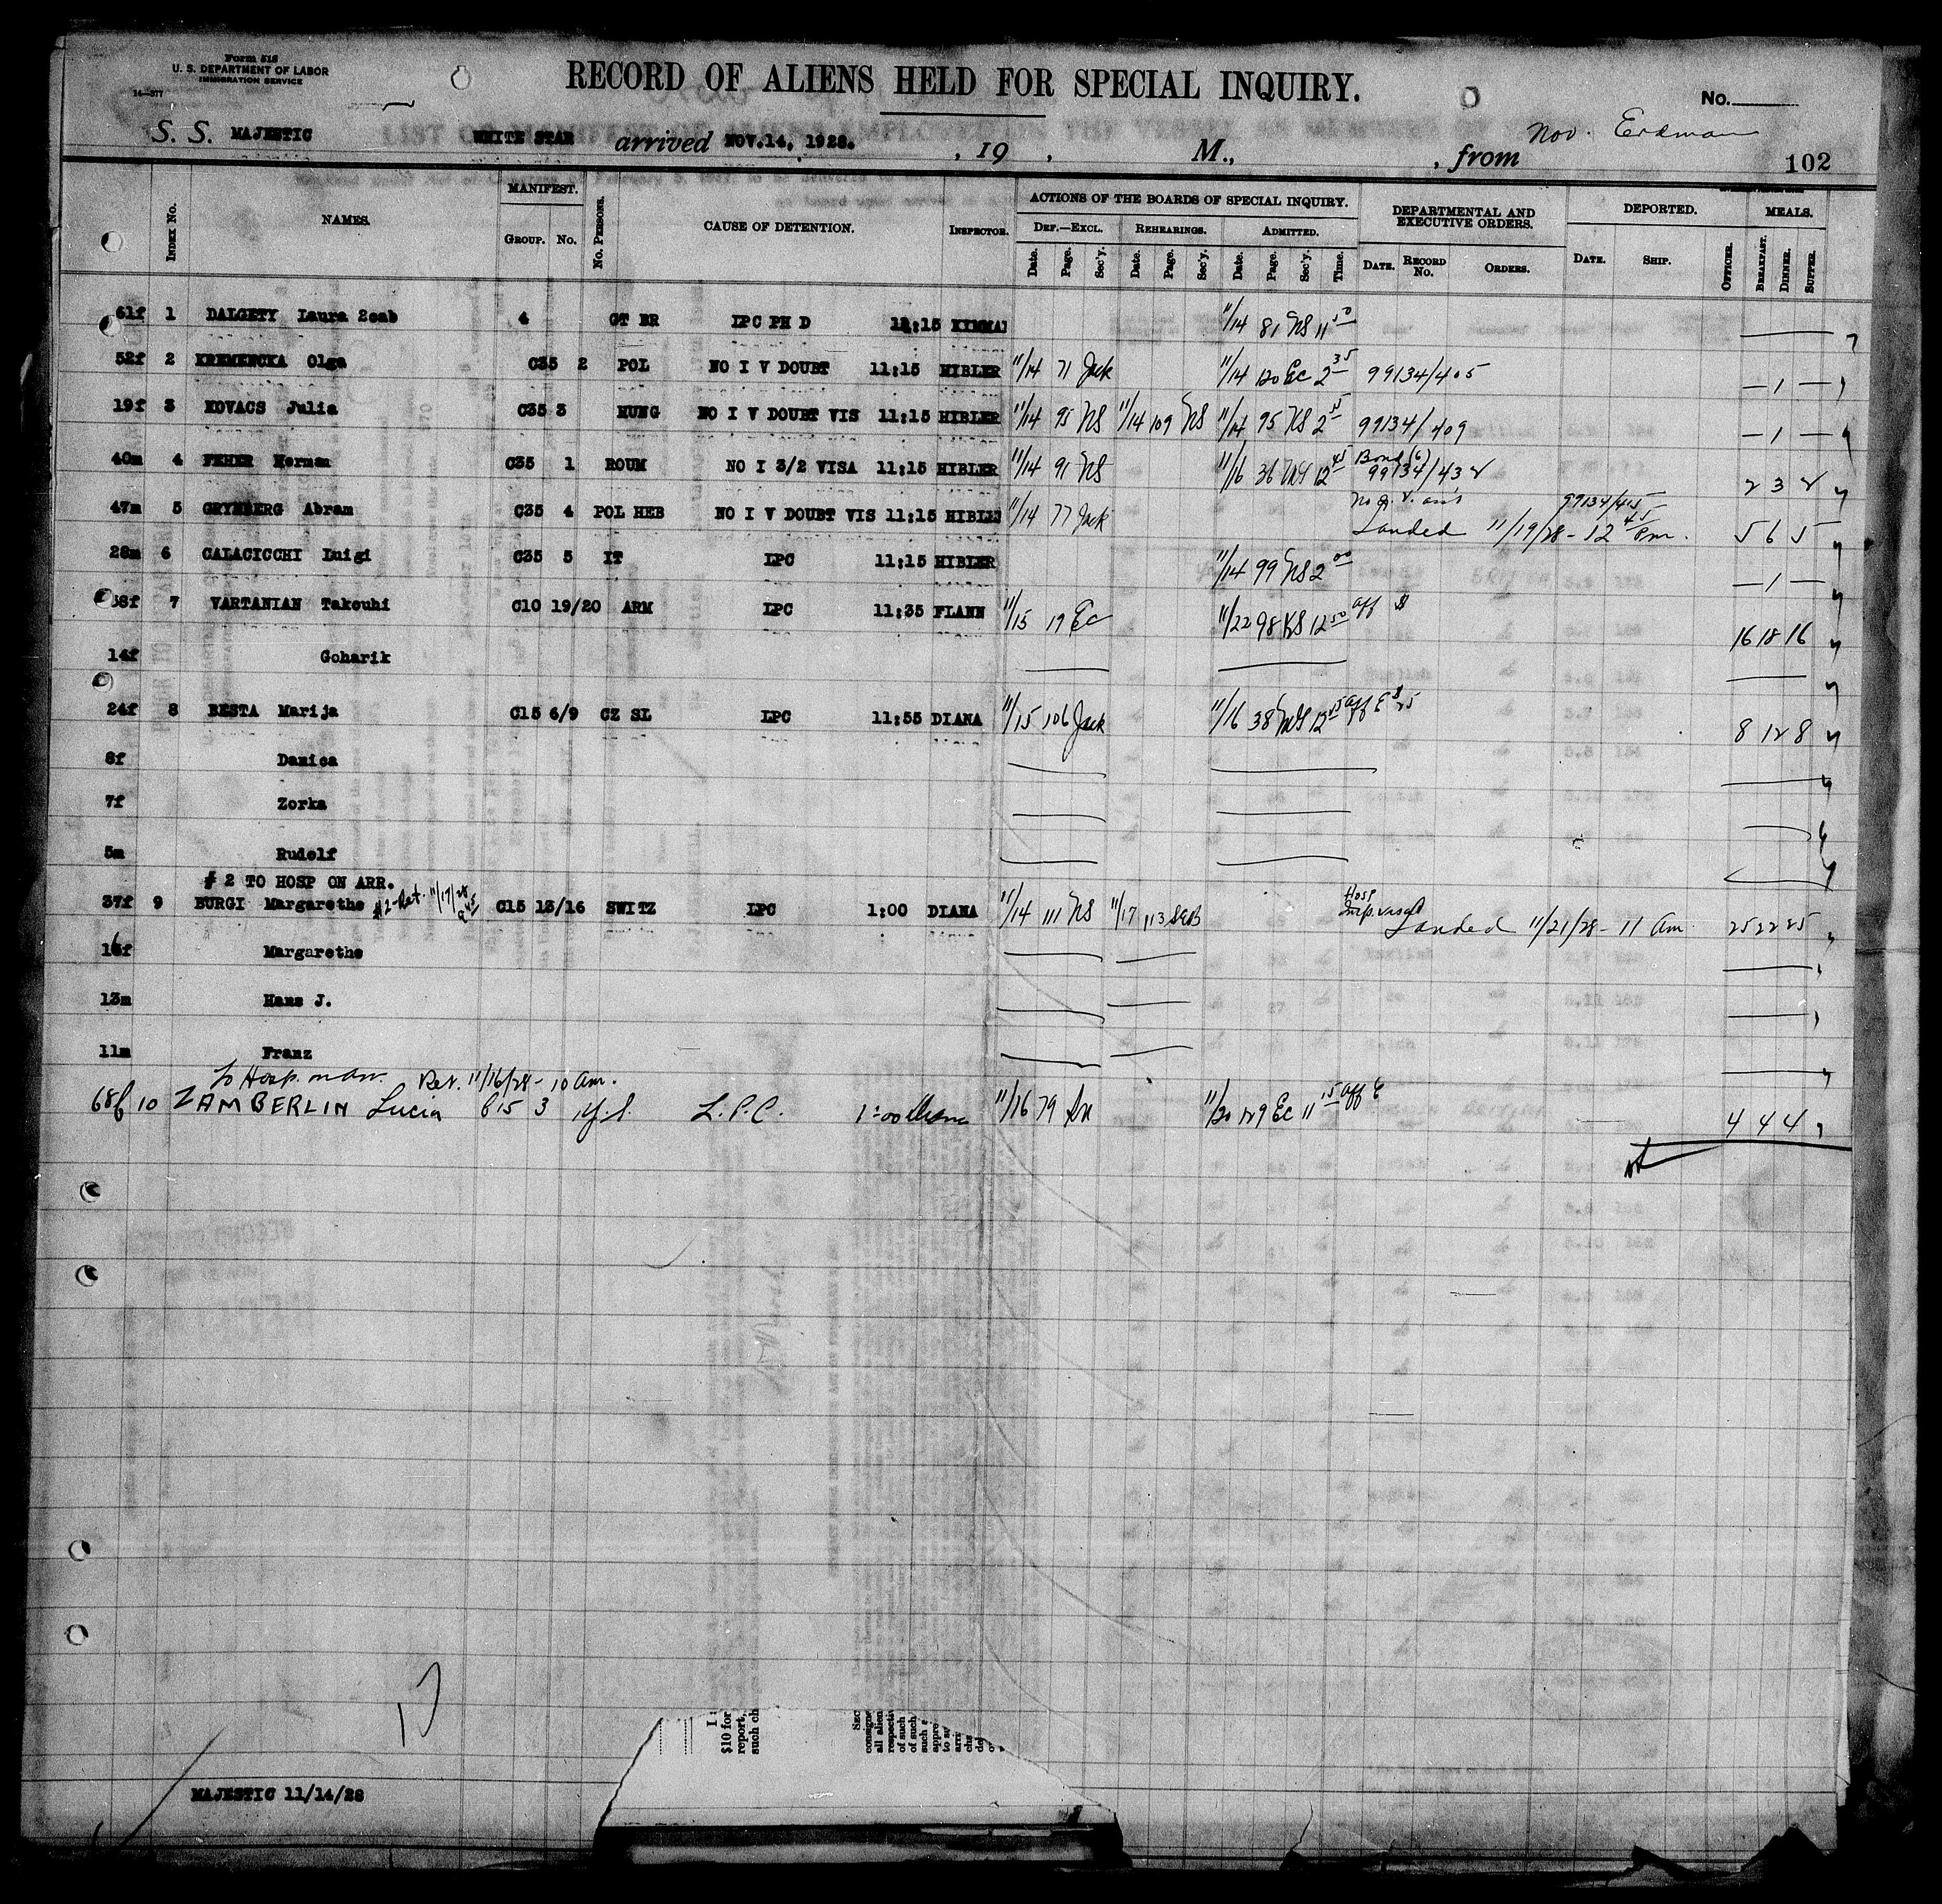 Form 518
U. S. DEPARTMENT OF LABOR
IMMIGRATION SERVICE
14—377
RECORD OF ALIENS HELD FOR SPECIAL INQUIRY.
No.
S. S. MAJESTIC WHITE STAR arrived NOV.14, 1928. , 19 , M., , from Nov. Erdman
102
INDEX No. NAMES. MANIFEST. GROUP. No. No. PERSONS. CAUSE OF DETENTION. INSPECTOR. ACTIONS OF THE BOARDS OF SPECIAL INQUIRY. DEPARTMENTAL AND EXECUTIVE ORDERS. DEPORTED. MEALS.
DEF.—EXCL. REHEARINGS. ADMITTED.
Date. Page. Sec'y. Date. Page. Sec'y. Date. Page. Sec'y. Time. DATE. RECORD No. ORDERS. DATE. SHIP. OFFICER. BREAKFAST. DINNER. SUPPER.
61f 1 DALGETY Laura 2cab 4 GT BR LPC PH D 11:15 11/14 81 NS 11 50
52f 2 KREMENCKA Olga C35 2 POL NO I V DOUBT 11:15 HIBLER 11/14 71 Jack 11/14 120 Ec 2 35 99134/405 — 1 —
19f 3 KOVACS Julia C35 3 HUNG NO I V DOUBT VIS 11:15 HIBLER 11/14 95 NS 11/14 109 NS 11/14 95 NS 2 99134/409 — 1 —
40m 4 FEHER Herman C35 1 ROUM NO I 3/2 VISA 11:15 HIBLER 11/14 91 NS 11/16 36 12 45 Bond 99134/432 2 3 2
47m 5 GRYNBERG Abram C35 4 POL HEB NO I V DOUBT VIS 11:15 HIBLER 11/14 77 Jack Landed 11/19/28 - 12 45 Pm. 99134/415 5 6 5
28m 6 CALACICCHI Luigi C35 5 IT LPC 11:15 HIBLER 11/14 99 NS 2 00 — 1 —
38f 7 VARTANIAN Takouhi C10 19/20 ARM LPC 11:35 FLANN 11/15 19 Ec 11/22 98 12 50 aff $ 16 18 16
14f Goharik
24f 8 BESTA Marija C15 6/9 CZ SL LPC 11:55 DIANA 11/15 106 Jack 11/16 38 12 aff 8 12 8
8f Danica
7f Zorka
5m Rudolf
# 2 TO HOSP ON ARR.
37f 9 BURGI Margarethe #2 Ret. 11/17/28 C15 13/16 SWITZ LPC 1:00 DIANA 11/14 111 NS 11/17 113 Hosp Landed 11/21/28 - 11 Am. 25 22 25
16f Margarethe
13m Hans J.
11m Franz
To Hosp. on arr. Ret. 11/16/28 - 10 am.
68f 10 ZAMBERLIN Lucia C15 3 L.P.C. 1:00 Diana 11/16 79 11/20 129 Ec 11 15 aff 4 4 4
MAJESTIC 11/14/28
$10 for
report,
such ch
SEC
consigne
all alien
respecti
of such
of such
such
appre
to
arri